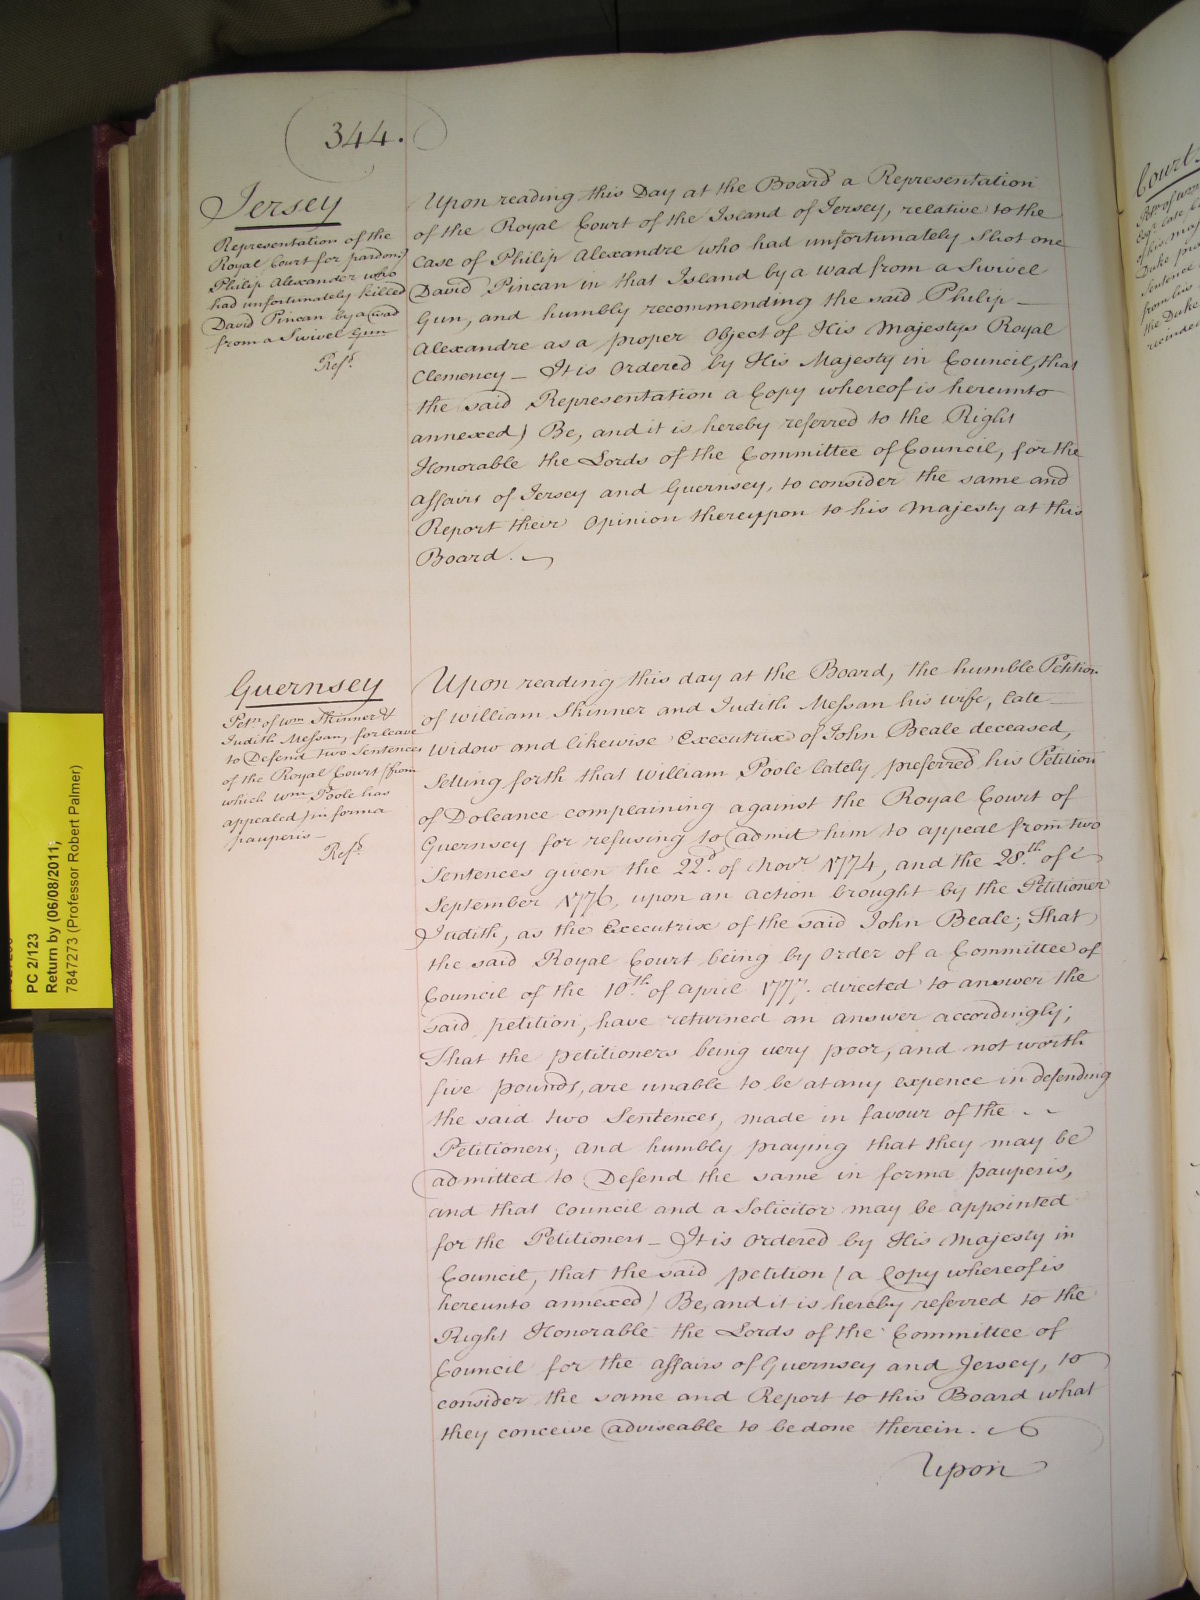 344.
Jersey
Representation of the
Royal Court for pardong
Philip Alexander who
had unfortunately killed
David Pincan by a wad
from a Swivel Gun
Ref.d
Upon reading this Day at the Board a Representation
of the Royal Court of the Island of Jersey, relative to the
Case of Philip Alexandre who had unfortunately Shot one
David Pincan in that Island by a wad from a Swivel
Gun, and humbly recommending the said Philip –
Alexandre as a proper Object of His Majestys Royal
Clemency – It is Ordered by His Majesty in Council, that
the said Representation a Copy whereof is hereunto
annexed) Be, and it is hereby referred to the Right
Honorable the Lords of the Committee of Council, for the
affairs of Jersey and Guernsey, to consider the same and
Report their Opinion thereuppon to his Majesty at this
Board.
Guernsey
Petn. of Wm. Skinner &
Judith Messan, for leave
to Defend two Sentences
of the Royal Court (from
which Wm. Poole has
appealed) in forma
pauperis –
Ref.d
Upon reading this day at the Board, the humble Petition
of William Skinner and Judith Messan his wife, late –
Widow and likewise Executrix of John Beale deceased,
Setting forth that William Poole lately preferred his Petition
of Doleance complaining against the Royal Court of
Guernsey for refusing to admit him to appeal from two
Sentences given the 22d. of Novr. 1774, and the 28th. of
September 1776, upon an action brought by the Petitioner
Judith, as the Executrix of the said John Beale; That
the said Royal Court being by Order of a Committee of
Council of the 10th. of April 1777. directed to answer the
said petition, have returned an answer accordingly;
That the petitioners being very poor, and not worth
five pounds, are unable to be at any expence in defending
the said two Sentences, made in favour of the
Petitioners, and humbly praying that they may be
admitted to Defend the same in forma pauperis,
and that Council and a Solicitor may be appointed
for the Petitioners – It is Ordered by His Majesty in
Council, that the said petition (a Copy whereof is
hereunto annexed) Be, and it is hereby referred to the
Right Honorable the Lords of the Committee of
Council for the affairs of Guernsey and Jersey, to
consider the same and Report to this Board what
they conceive adviseable to be done therein.
Upon
PC 2/123
Return by (06/08/2011;
7847273 (Professor Robert Palmer)
Duke
Sentence
from
the Duke